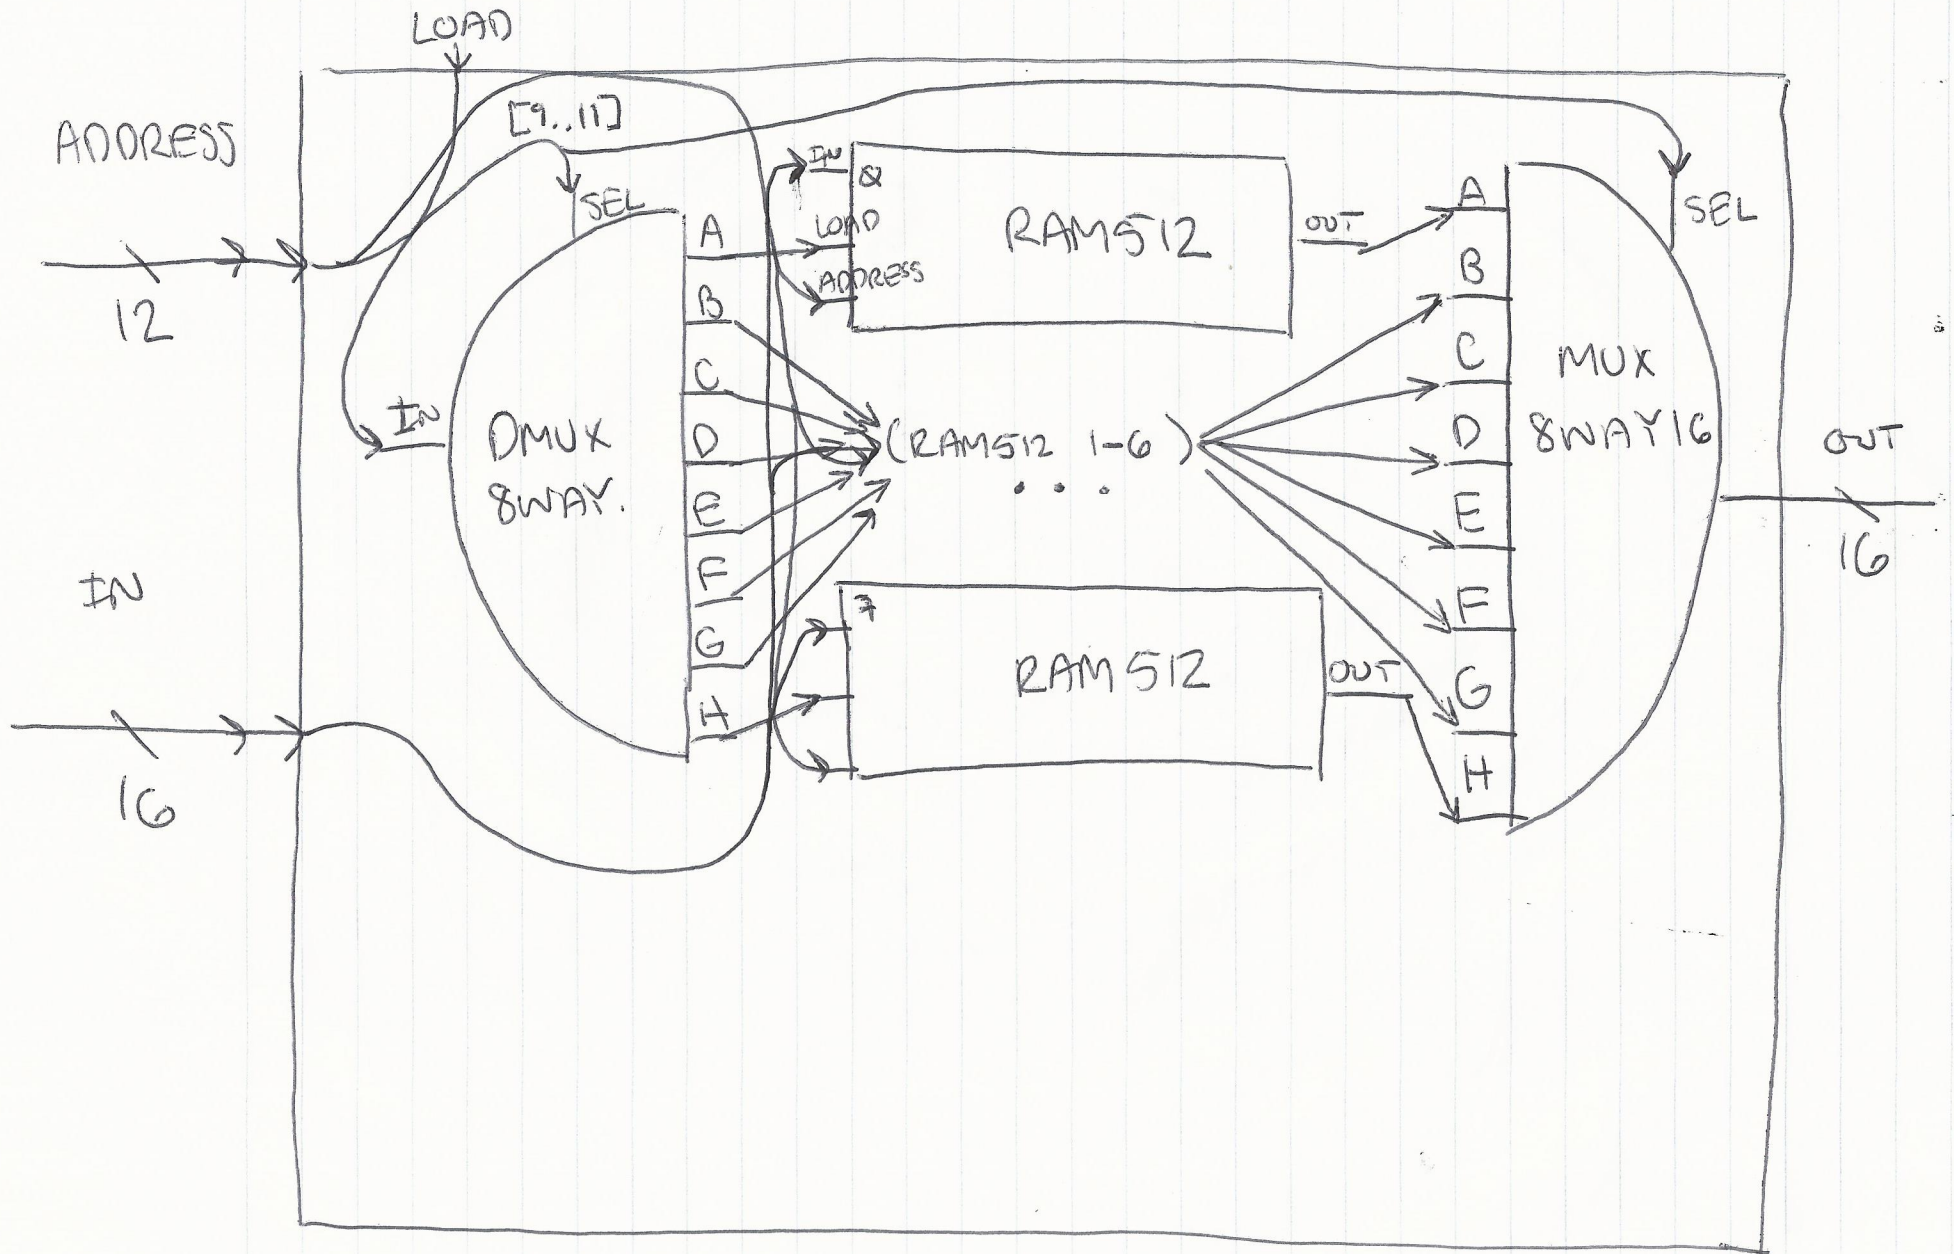 LOAD
ADDRESS
[9..11]
12
IN
16
SEL
IN
DMUX
8WAY.
A
B
C
D
E
F
G
H
IN
LOAD
ADDRESS
RAM512
OUT
(RAM512 1-6)
...
7
RAM512
OUT
A
B
C
D
E
F
G
H
SEL
MUX
8WAY16
OUT
16